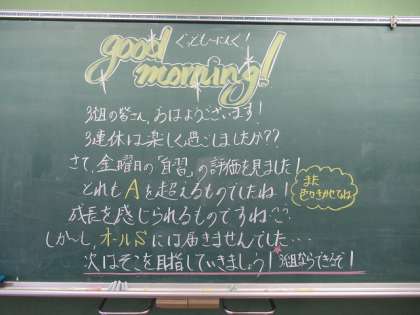 good
ぐっどもーにんぐ!
morning!
3組の皆さん、おはようございます!
3連休は楽しく過ごしましたか??
さて、金曜日の「自習」の評価を見ました!
どれもAを超えるものでしたね!
また
成長を感じられるものですね??
しか〜し、オールSには届きませんでした…
次はそこを目指していきましょう!3組ならできるで!